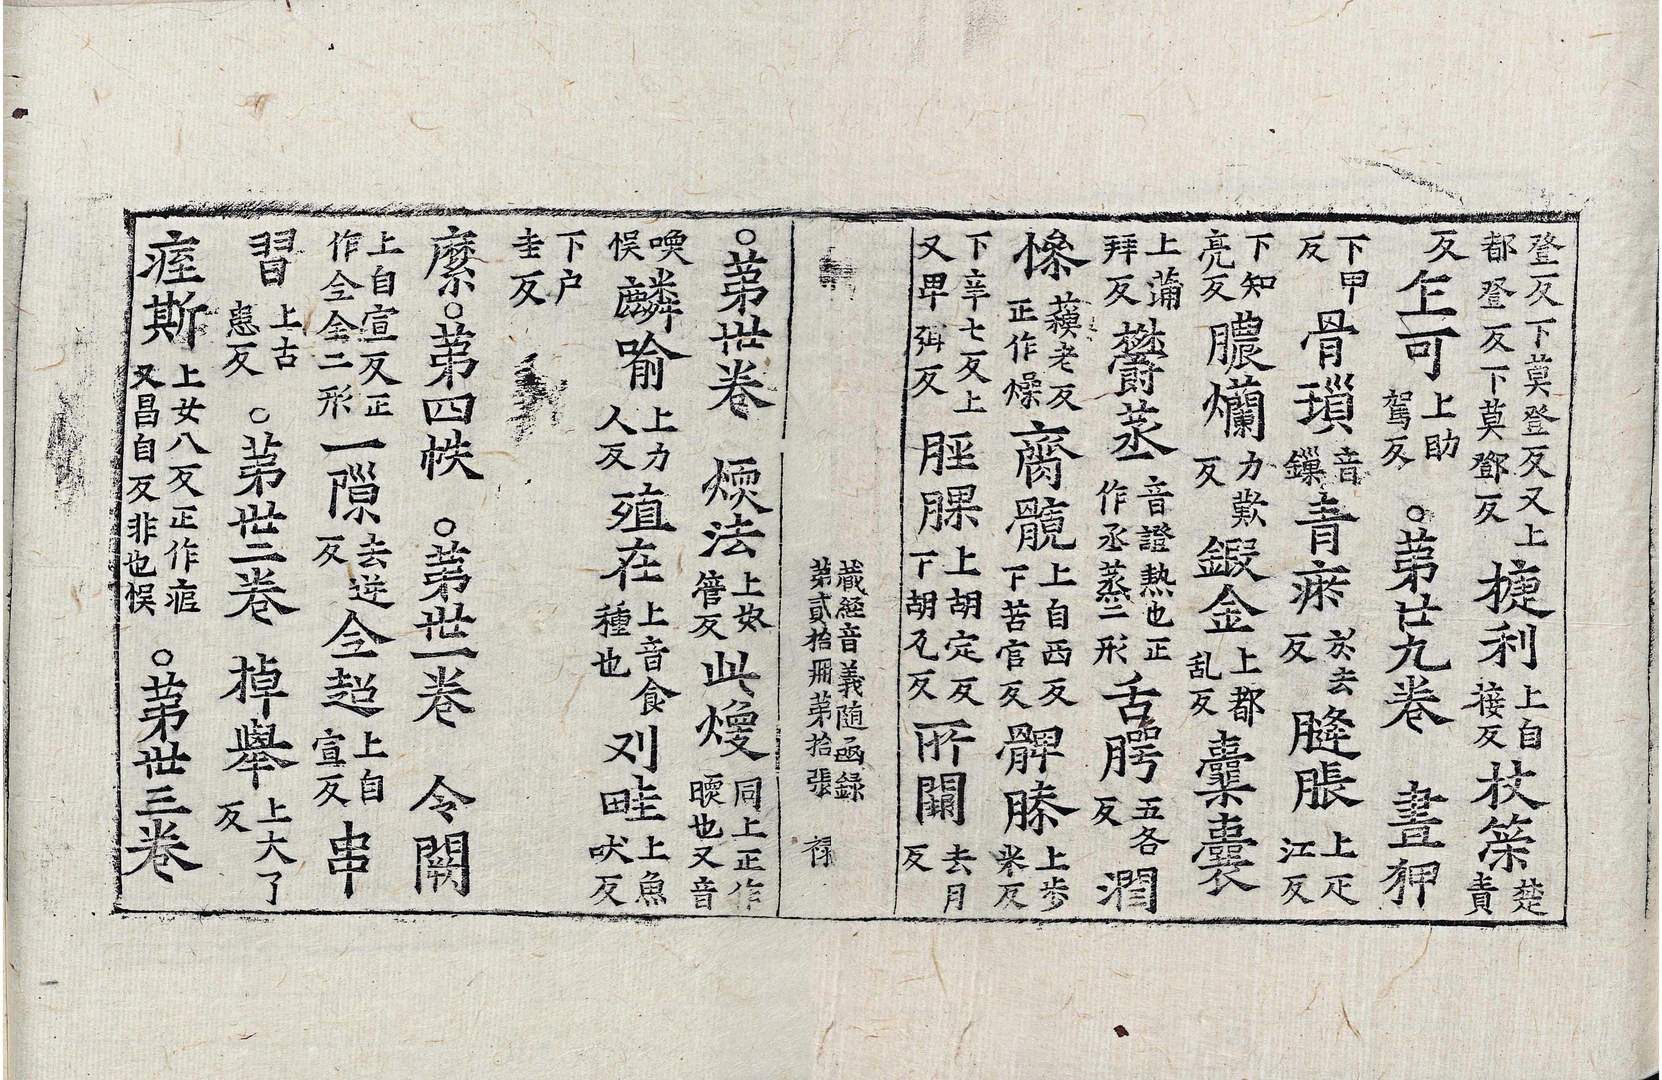 登反下莫登反又上都登反下莫鄧反捷利上自接反杖筞楚責
反𠂉可上助駕反○苐廿九卷晝狎
下甲反骨瑣音鏁青瘀於去反膖脹上疋江反
下知亮反膿爛力歎反鍛金上都乱反囊囊
上蒲拜反欝蒸音證熱也正作丞蒸二形舌腭五各反潤
𢢔藐老反正作燥齊髖上自西反下苦官反髀膝上步米反
下辛七反上又畀弭反脛腂上胡定反下胡瓦反所闕去月反
藏經音義随函録第貳拾冊苐拾張 禄
○苐卅卷煗法上奴管反此熳同上正作㬉也又音
喚悮麟喻上力人反殖在上音食種也刈畦上魚吠反
下户圭反
縻○苐四帙○苐卅一卷令闕
上自宣反正作仝全二形一隙去逆反仝超上自宣反串
習上古患反○苐卅二卷掉舉上大了反
痆斯上女八反正作疷又昌自反非也悮○苐卅三卷